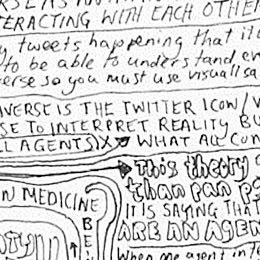 TERACTING WITH EACH OTHER
tweets happening that it
to be able to understand, e
verse so you must use visuallsa
AVERSE IS THE TWITTER ICON / V
SE TO INTERPRET REALITY BU
LL AGENTS X WHAT ALL CON
This theory
than pan p
N MEDICINE
IT IS SAYING THAT
ARE AN AGEN
BE
When one agent in Te